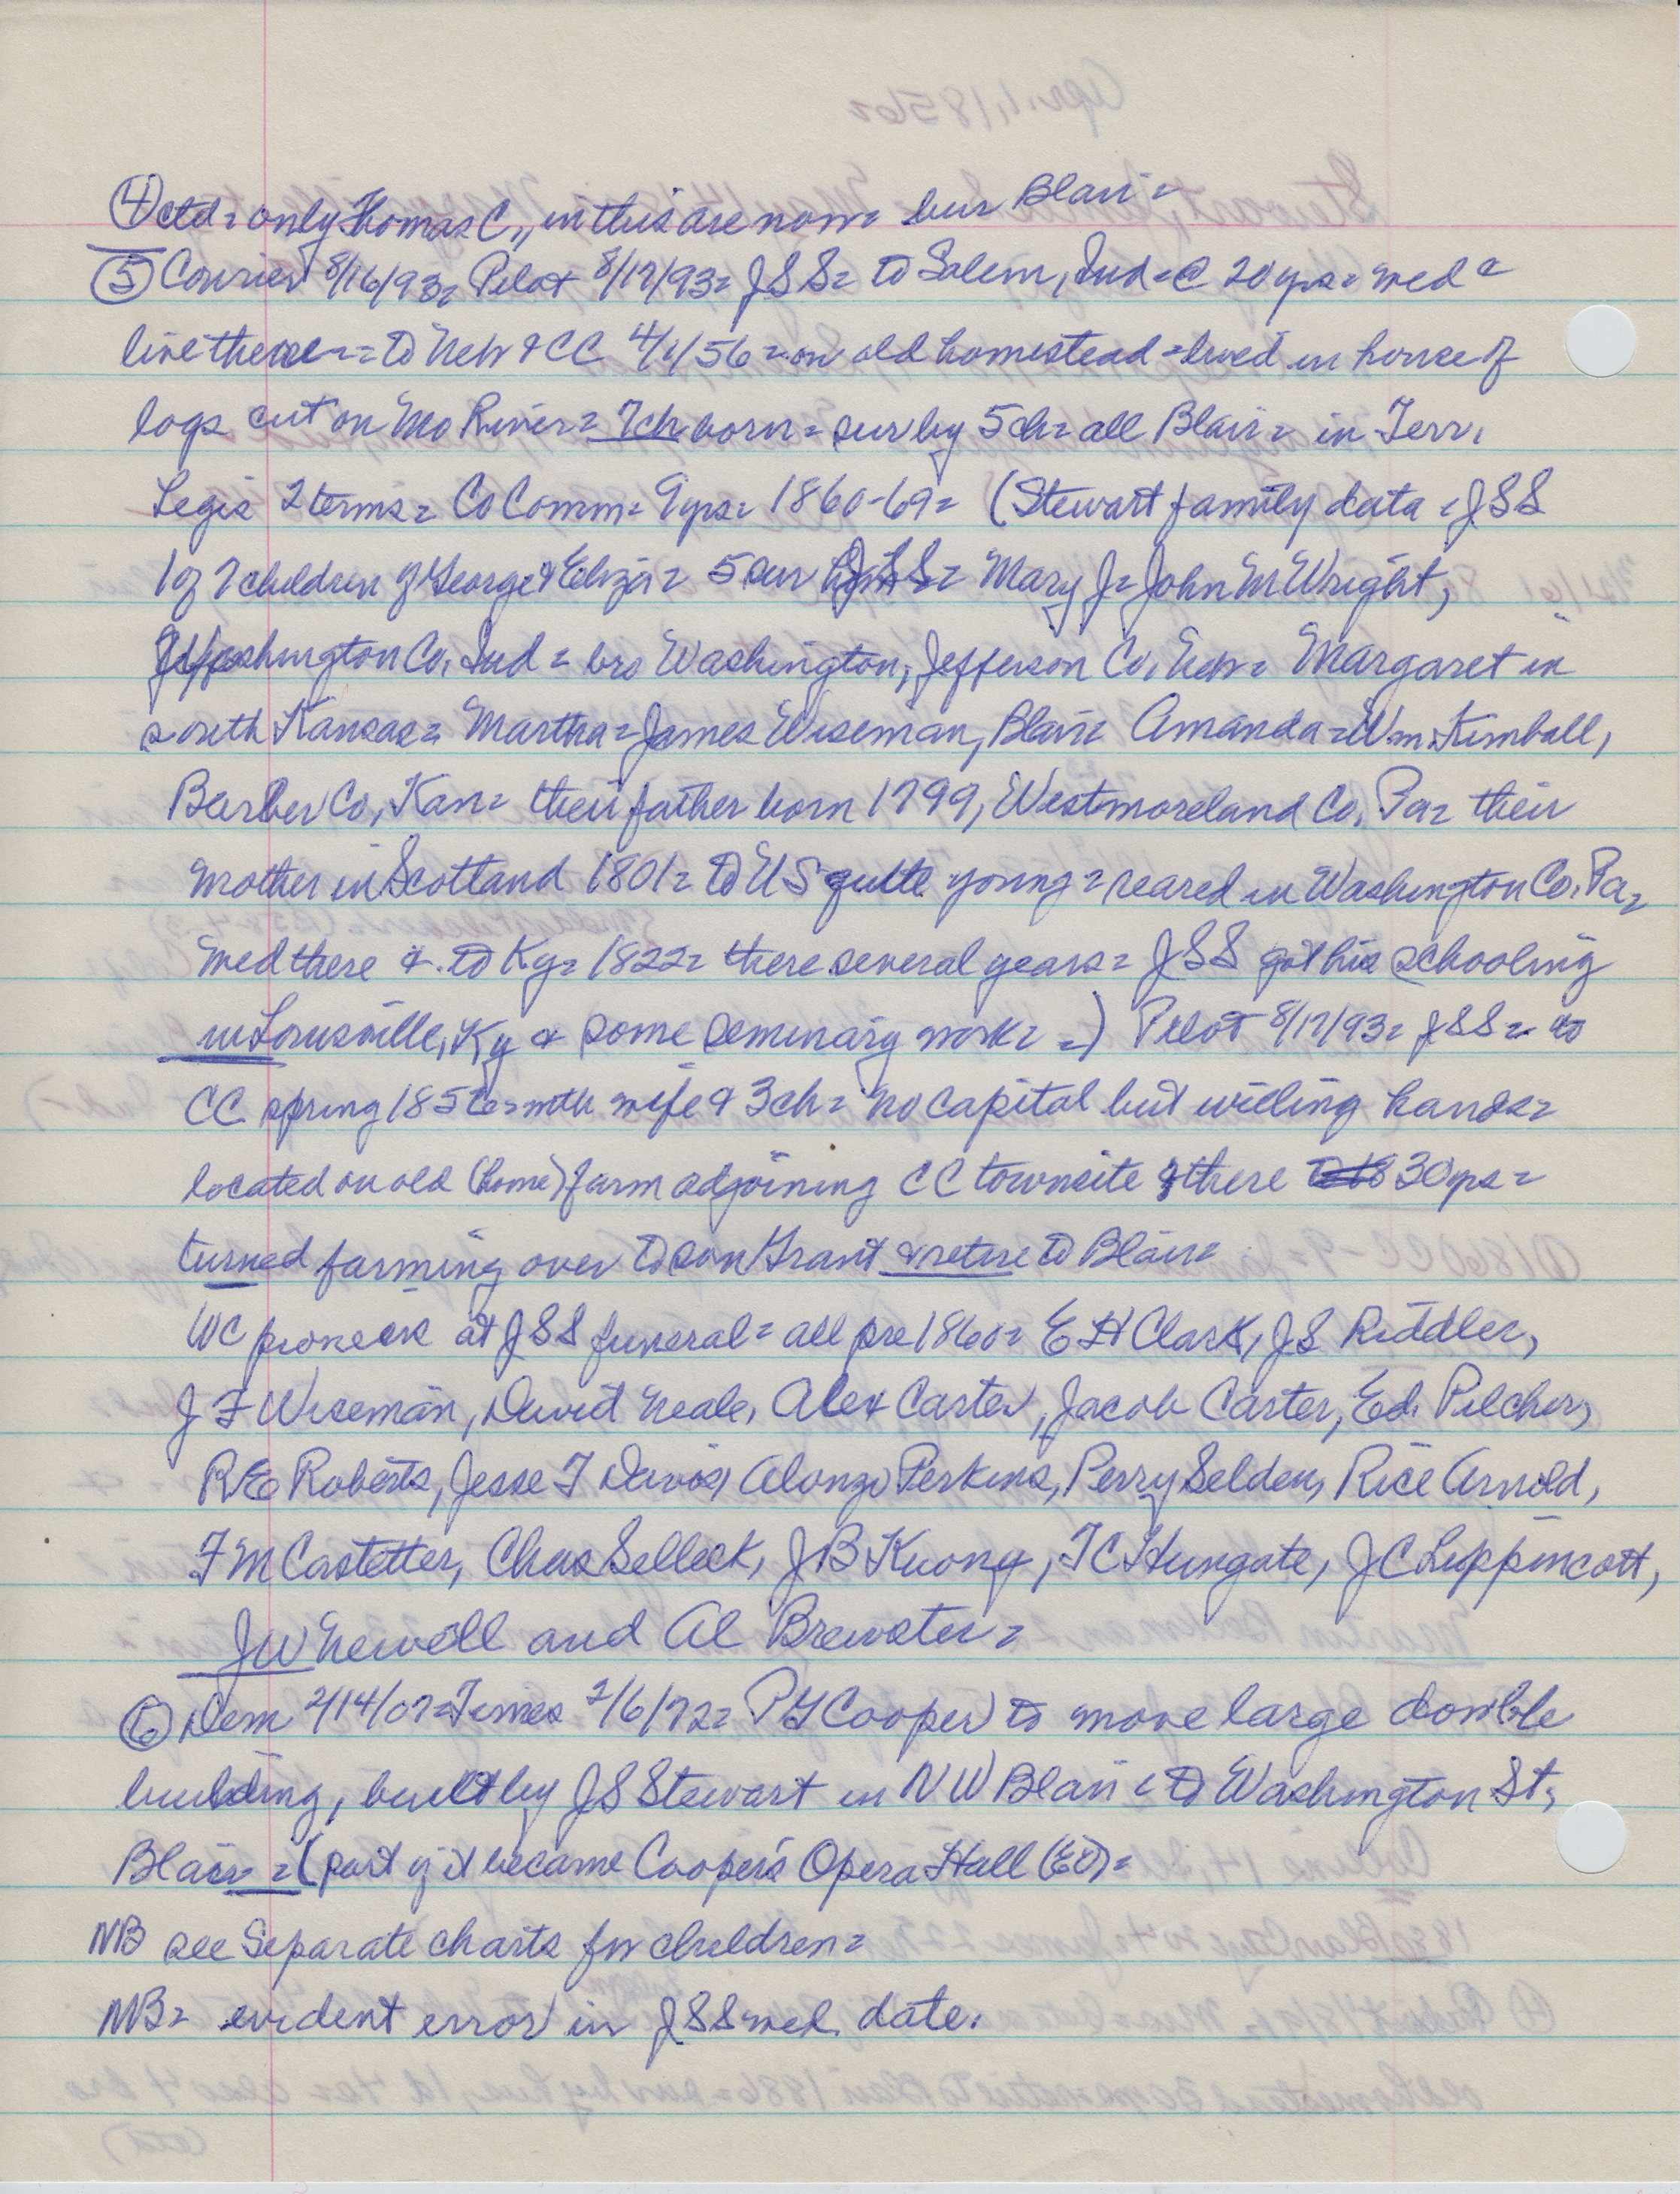 ④ ctd = only Thomas C., in this are now = bur Blair =
⑤ Courier 8/16/93 = Pilot 8/17/93 = JSS = to Salem, Ind = @ 20 yrs = med =
live there = to Neb & CC 4/1/56 = on old homestead = lived in house of
logs cut on Mo River = 7 ch born = sur by 5 ch = all Blair = in Terr.
Legis 2 terms = Co Comm = 9 yrs = 1860-69 = (Stewart family data = JSS
1 of 7 children of George & Eliza = 5 sur JSS = Mary J = John M Wright,
Washington Co. Ind = bro Washington, Jefferson Co. Neb = Margaret in
south Kansas = Martha = James Wiseman, Blair = Amanda = Wm. Kimball,
Barber Co, Kan = their father born 1799, Westmoreland Co. Pa = their
mother in Scotland 1801 = to US quite young = reared in Washington Co. Pa =
med there & to Ky = 1822 = there several years = JSS got his schooling
in Louisville, Ky & some seminary work = =) Pilot 8/17/93 = JSS = to
CC spring 1856 = with wife & 3 ch = no capital but willing hands =
located on old (home) farm adjoining CC townsite & there 30 yrs =
turned farming over to son Grant & retire to Blair =
WC pioneers at JSS funeral = all pre 1860 = E H Clark, JS Riddler,
J F Wiseman, David Neale, Alex Carter, Jacob Carter, Ed. Pilcher,
R E Roberts, Jesse T Davis, Alonzo Perkins, Perry Selden, Rice Arnold,
F M Castetter, Chas Selleck, J B Kuony, T C Hungate, J C Lippincott,
J W Newell and Al Brewster =
⑥ Dem 2/14/07 = Times 2/6/72 = P G Cooper to move large double
building, built by JS Stewart in NW Blair = to Washington St,
Blair = (part of it became Cooper's Opera Hall (Ed) =
NB see Separate charts for children =
NB = evident error in JSS med. date.